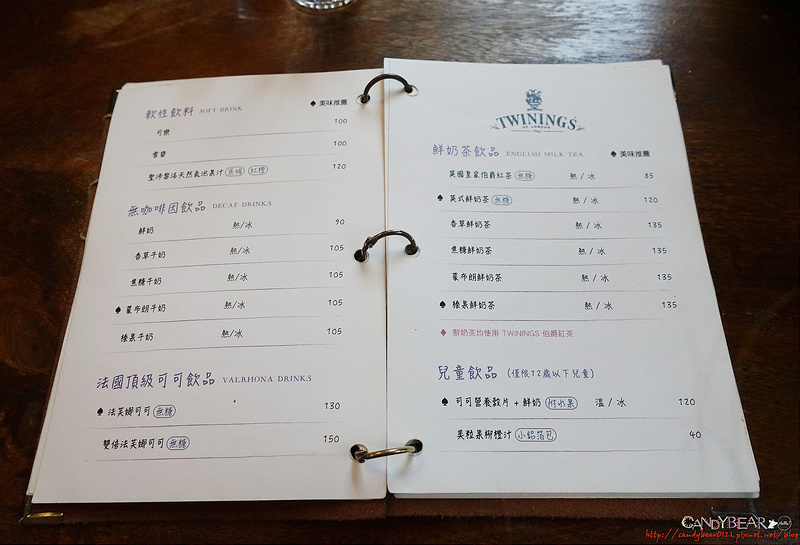 軟性飲料 SOFT DRINK ♠ 美味推薦
可樂 100
雪碧 100
聖沛黎洛天然氣泡果汁 紅橙 120
無咖啡因飲品 DECAF DRINKS
鮮奶 熱/冰 90
香草牛奶 熱/冰 105
焦糖牛奶 熱/冰 105
♠ 蒙布朗牛奶 熱/冰 105
榛果牛奶 熱/冰 105
法國頂級可可飲品 VALRHONA DRINKS
♠ 法芙娜可可 無糖 130
雙倍法芙娜可可 無糖 150
TWININGS
OF LONDON
鮮奶茶飲品 ENGLISH MILK TEA ♠ 美味推薦
英國皇家伯爵紅茶 無糖 熱/冰 85
♠ 英式鮮奶茶 無糖 熱/冰 120
香草鮮奶茶 熱/冰 135
焦糖鮮奶茶 熱/冰 135
蒙布朗鮮奶茶 熱/冰 135
♠ 榛果鮮奶茶 熱/冰 135
♦ 鮮奶茶均使用 TWININGS 伯爵紅茶
兒童飲品 (僅限12歲以下兒童)
♠ 可可營養穀片 + 鮮奶 附水果 溫/冰 120
美粒果柳橙汁 小鋁箔包 40
CANDYBEAR
https://candybear0121.pixnet.net/blog